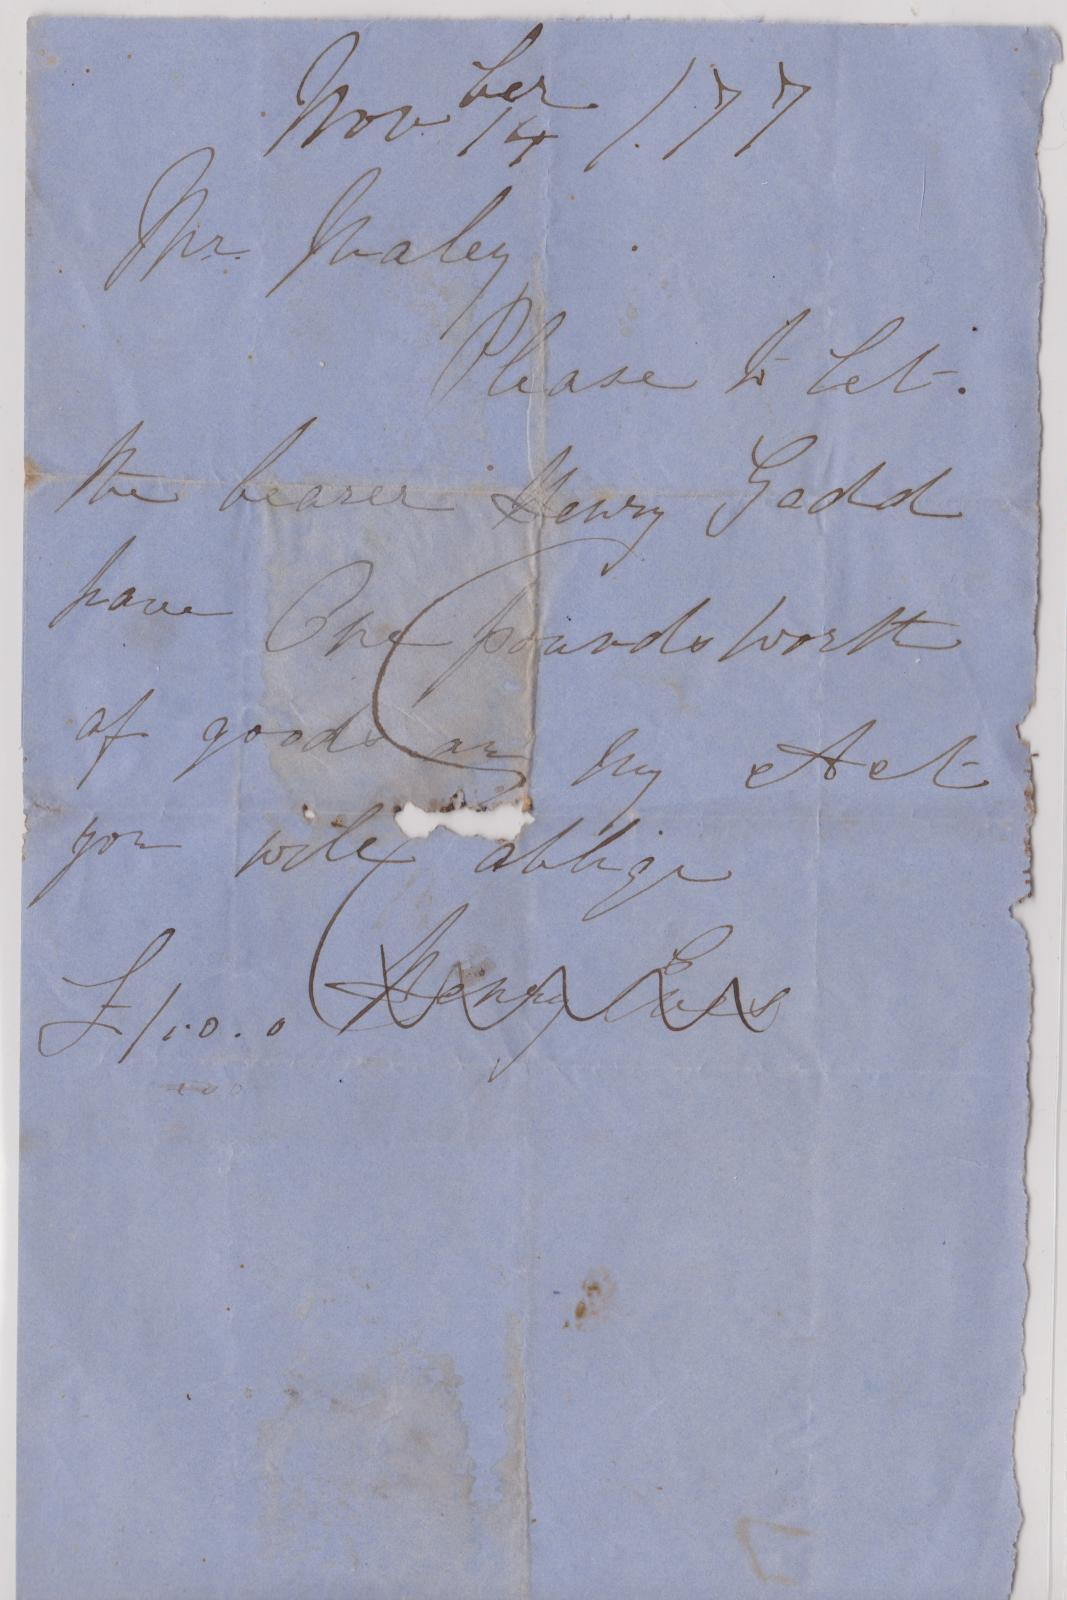 Novber 14 /.77
Mr. Waley
Please to Let.
the bearer Henry Gadd
have One pounds worth
of goods on my Act
you will oblige
Henry
£1.0.0